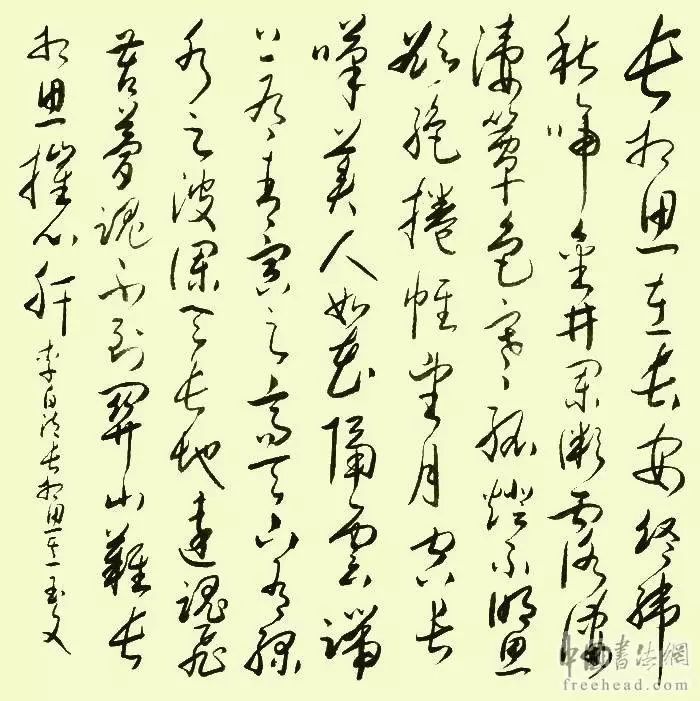 長相思在長安絡緯
秋啼金井闌微霜淒
淒簟色寒孤燈不明思
欲絕捲帷望月空長
嘆美人如花隔雲端
上有青冥之高天下有淥
水之波瀾天長地遠魂飛
苦夢魂不到關山難長
相思摧心肝
李白詩長相思其一
中國書法網
freehead.com